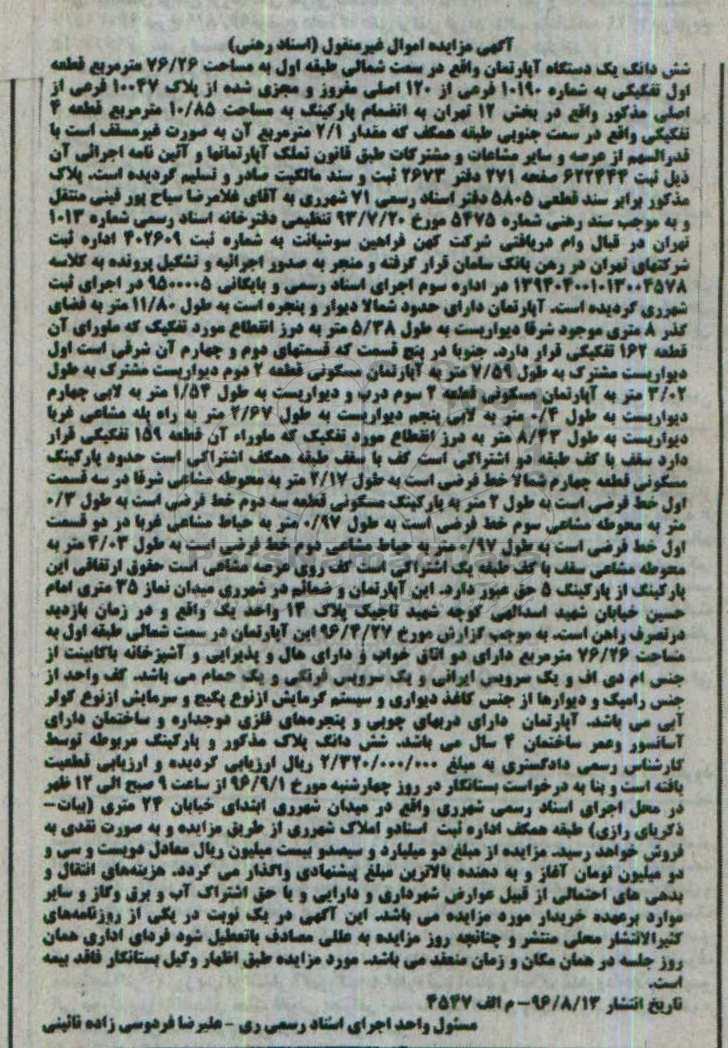 آگهی مزایده اموال غیرمنقول (اسناد رهنی)
شش دانگ یک دستگاه آپارتمان واقع در سمت شمالی طبقه اول به مساحت ۷۶/۲۶ مترمربع قطعه
اول تفکیکی به شماره ۱۰۱۹۰ فرعی از ۱۲۰ اصلی مفروز و مجزی شده از پلاک ۱۰۰۴۷ فرعی از
اصلی مذکور واقع در بخش ۱۲ تهران به انضمام پارکینگ به مساحت ۱۰/۸۵ مترمربع قطعه ۴
تفکیکی واقع در سمت جنوبی طبقه همکف که مقدار ۲/۱ مترمربع آن به صورت غیرمسقف است با
قدرالسهم از عرصه و سایر مشاعات و مشترکات طبق قانون تملک آپارتمانها و آئین نامه اجرائی آن
ذیل ثبت ۶۲۲۴۴۴ صفحه ۲۷۱ دفتر ۲۶۷۳ ثبت و سند مالکیت صادر و تسلیم گردیده است. پلاک
مذکور برابر سند قطعی ۵۸۰۵ دفتر اسناد رسمی ۷۱ شهرری به آقای غلامرضا سیاح پور فینی منتقل
و به موجب سند رهنی شماره ۵۴۷۵ مورخ ۹۳/۷/۲۰ تنظیمی دفترخانه اسناد رسمی شماره ۱۰۱۳
تهران در قبال وام دریافتی شرکت کهن فراهین سوشیانت به شماره ثبت ۴۰۲۶۰۹ اداره ثبت
شرکتهای تهران در رهن بانک سامان قرار گرفته و منجر به صدور اجرائیه و تشکیل پرونده به کلاسه
۱۳۹۴۰۴۰۰۱۰۱۳۰۰۴۵۷۸ در اداره سوم اجرای اسناد رسمی و بایگانی ۹۵۰۰۰۰۵ در اجرای ثبت
شهرری گردیده است. آپارتمان دارای حدود شمالا دیوار و پنجره است به طول ۱۱/۸۰ متر به فضای
گذر ۸ متری موجود شرقا دیواریست به طول ۵/۳۸ متر به درز انقطاع مورد تفکیک که ماورای آن
قطعه ۱۶۲ تفکیکی قرار دارد. جنوبا در پنج قسمت که قسمتهای دوم و چهارم آن شرقی است اول
دیواریست مشترک به طول ۷/۵۹ متر به آپارتمان مسکونی قطعه ۲ دوم دیواریست مشترک به طول
۳/۰۲ متر به آپارتمان مسکونی قطعه ۲ سوم درب و دیواریست به طول ۱/۵۴ متر به لابی چهارم
دیواریست به طول ۰/۴ متر به لابی پنجم دیواریست به طول ۲/۶۷ متر به راه پله مشاعی غربا
دیواریست به طول ۸/۴۳ متر به درز انقطاع مورد تفکیک که ماوراء آن قطعه ۱۵۹ تفکیکی قرار
دارد سقف با کف طبقه دو اشتراکی است کف با سقف طبقه همکف اشتراکی است حدود پارکینگ
مسکونی قطعه چهارم شمالا خط فرضی است به طول ۲/۱۷ متر به محوطه مشاعی شرقا در سه قسمت
اول خط فرضی است به طول ۲ متر به پارکینگ مسکونی قطعه سه دوم خط فرضی است به طول ۰/۳
متر به محوطه مشاعی سوم خط فرضی است به طول ۰/۹۷ متر به حیاط مشاعی غربا در دو قسمت
اول خط فرضی است به طول ۰/۹۷ متر به حیاط مشاعی دوم خط فرضی است به طول ۴/۰۳ متر به
محوطه مشاعی سقف با کف طبقه یک اشتراکی است کف روی عرصه مشاعی است حقوق ارتفاقی این
پارکینگ از پارکینگ ۵ حق عبور دارد. این آپارتمان و ضمائم در شهرری میدان نماز ۳۵ متری امام
حسین خیابان شهید اسدالهی کوچه شهید تاجیک پلاک ۱۴ واحد یک واقع و در زمان بازدید
درتصرف راهن است. به موجب گزارش مورخ ۹۶/۴/۲۷ این آپارتمان در سمت شمالی طبقه اول به
مساحت ۷۶/۲۶ مترمربع دارای دو اتاق خواب و دارای هال و پذیرایی و آشپزخانه باکابینت از
جنس ام دی اف و یک سرویس ایرانی و یک سرویس فرنگی و یک حمام می باشد. کف واحد از
جنس رامیک و دیوارها از جنس کاغذ دیواری و سیستم گرمایش ازنوع پکیج و سرمایش ازنوع کولر
آبی می باشد. آپارتمان دارای دربهای چوبی و پنجره‌های فلزی دوجداره و ساختمان دارای
آسانسور وعمر ساختمان ۴ سال می باشد. شش دانگ پلاک مذکور و پارکینگ مربوطه توسط
کارشناس رسمی دادگستری به مبلغ ۲/۳۲۰/۰۰۰/۰۰۰ ریال ارزیابی گردیده و ارزیابی قطعیت
یافته است و بنا به درخواست بستانکار در روز چهارشنبه مورخ ۹۶/۹/۱ از ساعت ۹ صبح الی ۱۲ ظهر
در محل اجرای اسناد رسمی شهرری واقع در میدان شهرری ابتدای خیابان ۲۴ متری (بیات-
ذکریای رازی) طبقه همکف اداره ثبت اسنادو املاک شهرری از طریق مزایده و به صورت نقدی به
فروش خواهد رسید. مزایده از مبلغ دو میلیارد و سیصدو بیست میلیون ریال معادل دویست و سی و
دو میلیون تومان آغاز و به دهنده بالاترین مبلغ پیشنهادی واگذار می گردد. هزینه‌های انتقال و
بدهی های احتمالی از قبیل عوارض شهرداری و دارایی و یا حق اشتراک آب و برق وگاز و سایر
موارد برعهده خریدار مورد مزایده می باشد. این آگهی در یک نوبت در یکی از روزنامه‌های
کثیرالانتشار محلی منتشر و چنانچه روز مزایده به عللی مصادف باتعطیل شود فردای اداری همان
روز جلسه در همان مکان و زمان منعقد می باشد. مورد مزایده طبق اظهار وکیل بستانکار فاقد بیمه
است.
تاریخ انتشار ۹۶/۸/۱۳- م الف ۴۵۴۷
مسئول واحد اجرای اسناد رسمی ری - علیرضا فردوسی زاده نائینی